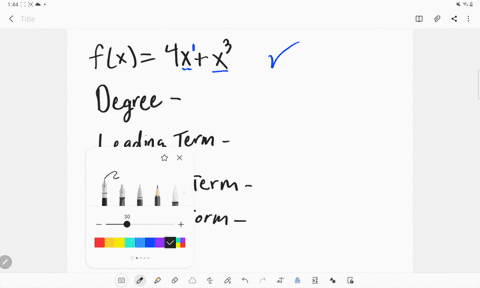 1:44
Title
f(x) = 4x¹ + x³ ✓
Degree -
Leading Term -
30
Term -
orm -